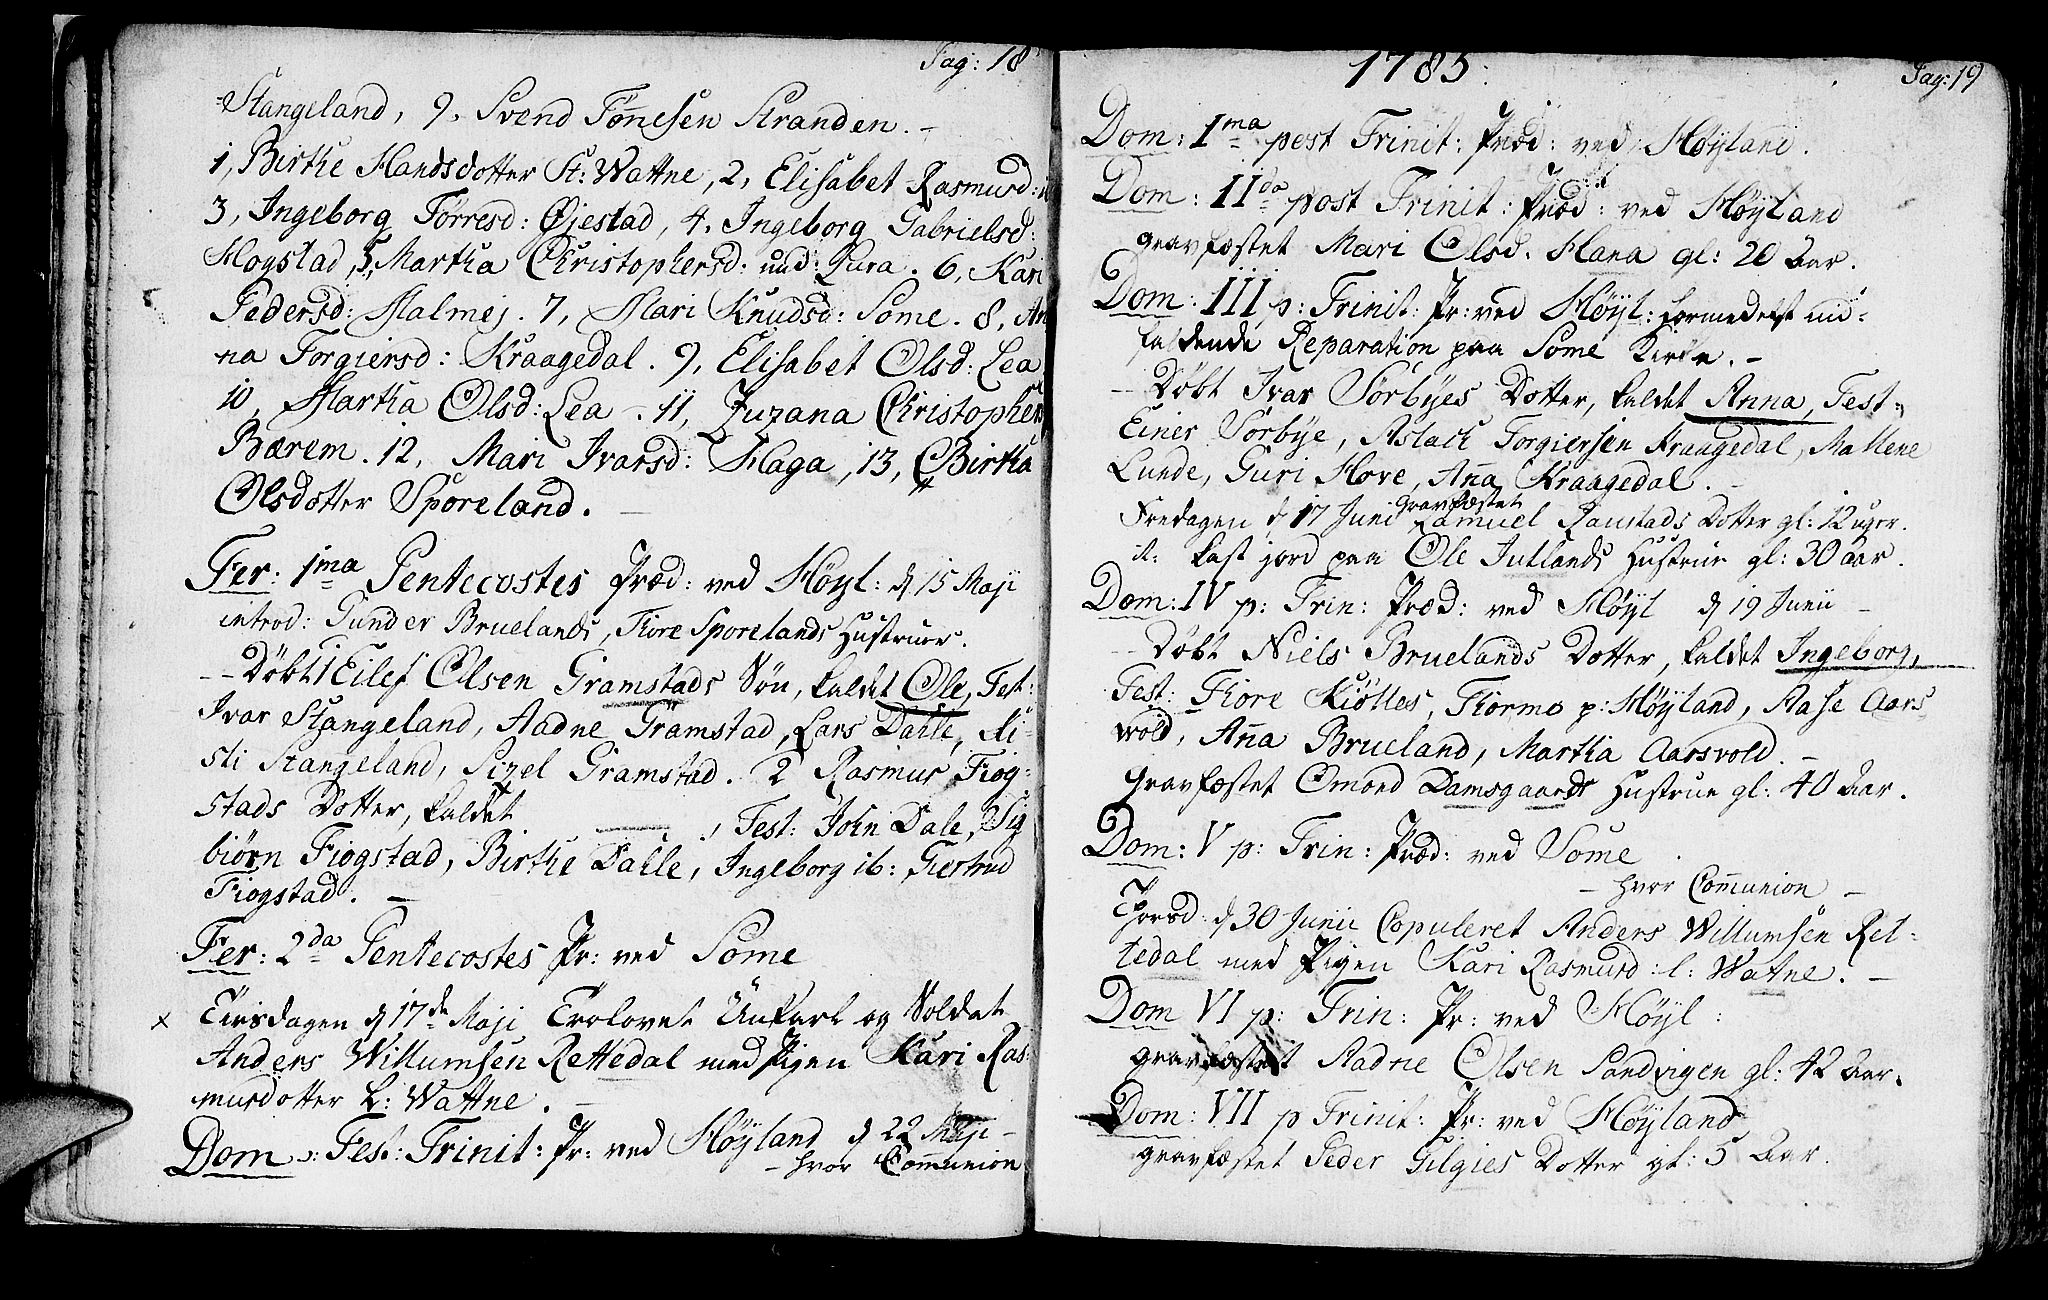 Pag: 18
Stangeland, 9, Svend Tönesen Stranden. -
1, Birthe Handsdotter St: Wattne, 2, Elisabet Rasmusd:
3, Ingeborg Törresd: Øjestad, 4, Ingeborg Gabrielsd:
Hogstad, 5, Martha Christophersd: und: Lura. 6, Kari
Pedersd: Malmej. 7, Mari Knudsd: Some. 8, An
na Torgiersd: Kraagedal. 9, Elisabet Olsd: Lea
10, Martha Olsd: Lea - 11, Zuzana Christophers
Bærem. 12, Mari Ivarsd: Haga, 13, Birtha
Olsdotter Sporeland. -
Fer: 1ma Pentecostes Præd: ved Höyl: d 15 Maji
introd: Gunder Bruelands, Tore Sporelands Hustruer.
- - Döbt 1 Eilef Olsen Gramstads Sön, kaldet Ole, Test:
Ivar Stangeland, Aadne Gramstad, Lars Dalle, Ki-
sti Stangeland, Sizel Gramstad. 2 Rasmus Fiog-
stads Dotter, kaldet , Test: John Dale, Sig
biörn Fiogstad, Birthe Dalle, Ingeborg ib: Giertrud
Fiogstad. -
Fer: 2da Pentecostes Pr: ved Some
x Tirsdagen d 17de Maji Trolovet Unkarl og Soldat
Anders Willumsen Rettedal med Pigen Kari Ras-
musdotter L: Wattne. -
Dom: Fest: Trinit: Pr: ved Höyland d 22 Maji -
- hvor Communion
1785.
Pag: 19
Dom: 1ma post Trinit: Præd: ved Höyland.
Dom: IIda post Trinit: Præd: ved Höyland
gravfæstet Mari Olsd. Hana gl: 20 Aar.
Dom: III p: Trinit: Pr: ved Höyl: formedelst ind-
faldende Reparation paa Some Kirke. -
- Döbt Ivar Sörbyes Dotter, kaldet Anna, Test:
Einer Sörbye, Aslach Torgiersen Kraagedal, Mallene
Lunde, Guri Hove, Aña Kraagedal. -
Fredagen d 17 Juni gravfæstet Samuel Raustads Dotter gl: 12 uger.
it: kast jord paa Ole Jutlands Hustrue gl: 30 Aar.
Dom: IV p: Trin: Præd: ved Höyl d 19 Junii -
- Döbt Niels Bruelands Dotter, kaldet Ingeborg,
Test: Tore Kiölles, Tormo p: Höyland, Aase Aars-
wold, Aña Brueland, Martha Aarsvold. -
gravfæstet Omond Damsgaards Hustrue gl: 40 Aar.
Dom: V p: Trin: Præd: ved Some
- hvor Communion -
Torsd: d 30 Junii Copuleret Anders Willumsen Ret-
tedal med Pigen Kari Rasmusd: l: Watne. -
Dom VI p: Trin: Pr: ved Höyl:
gravfæstet Aadne Olsen Sandvigen gl: 42 Aar.
Dom: VII p Trinit: Pr: ved Höyland
gravfæstet Peder Gilgies Dotter gl: 5 Aar.